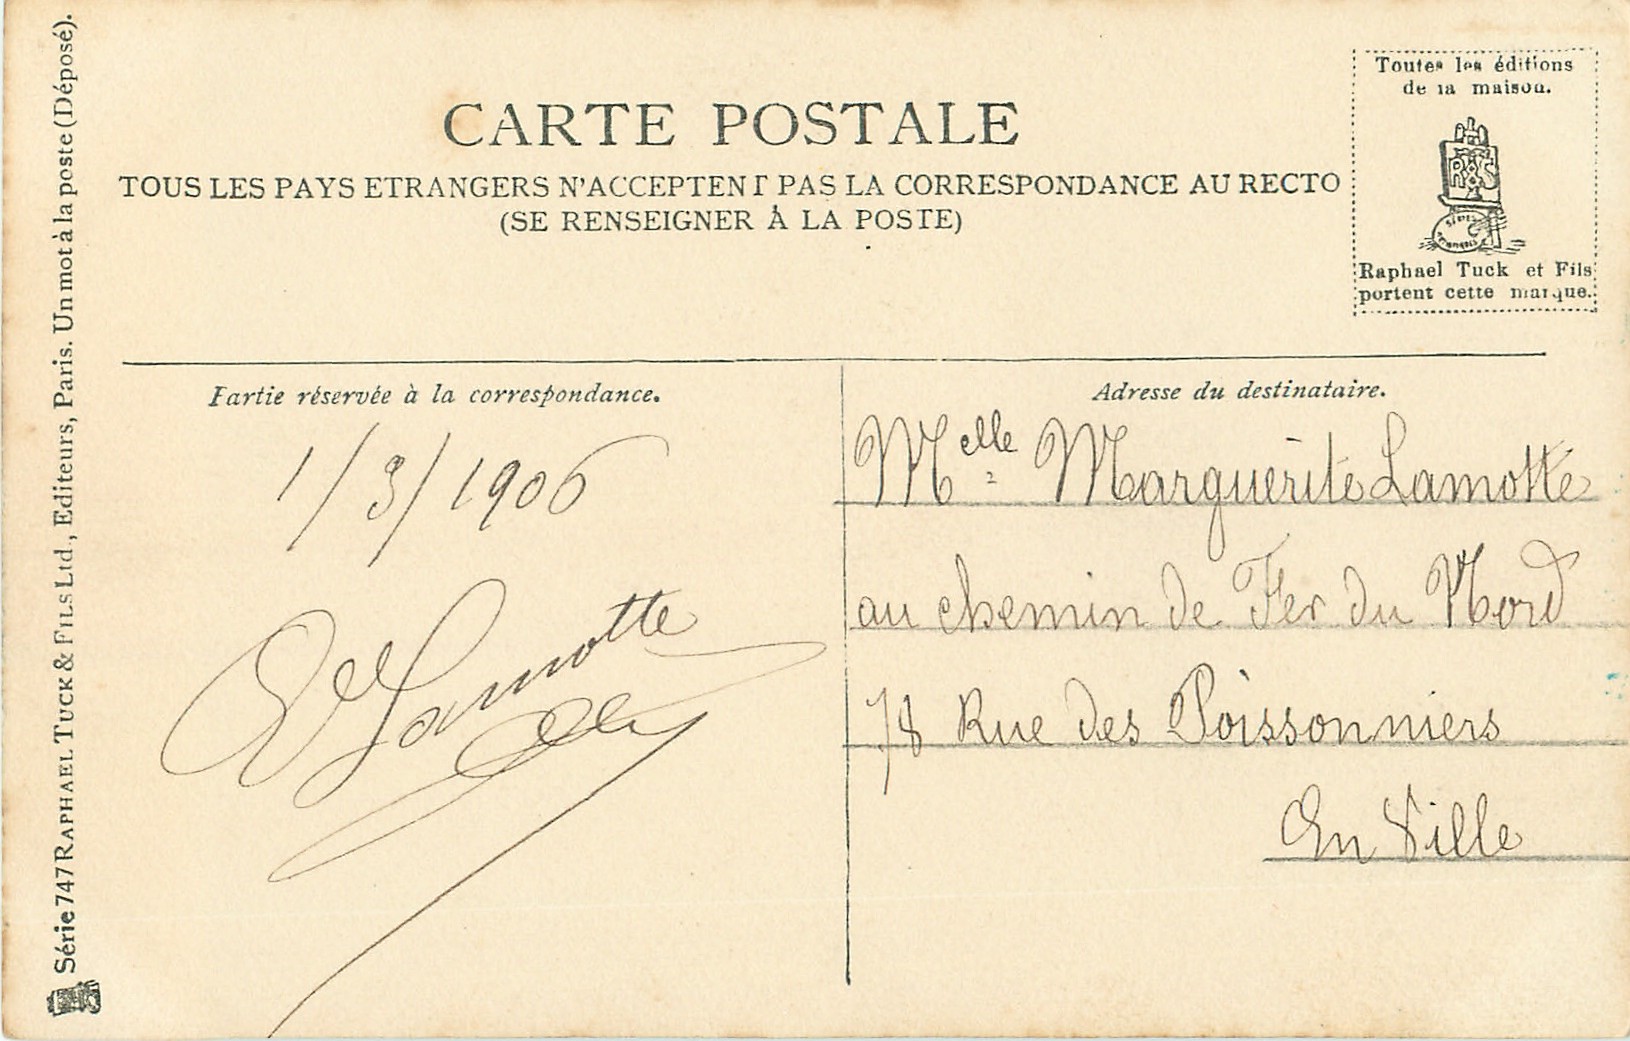 CARTE POSTALE
TOUS LES PAYS ETRANGERS N'ACCEPTENT PAS LA CORRESPONDANCE AU RECTO
(SE RENSEIGNER À LA POSTE)
Toutes les éditions
de la maison.
Raphael Tuck et Fils
portent cette marque.
Série 747 RAPHAEL TUCK & FILS Ltd., Editeurs, Paris. Un mot à la poste (Déposé).
Partie réservée à la correspondance.
1/3/1906
Lamotte
Adresse du destinataire.
Melle Marguerite Lamotte
au chemin de Fer du Nord
78 Rue des Poissonniers
En Ville